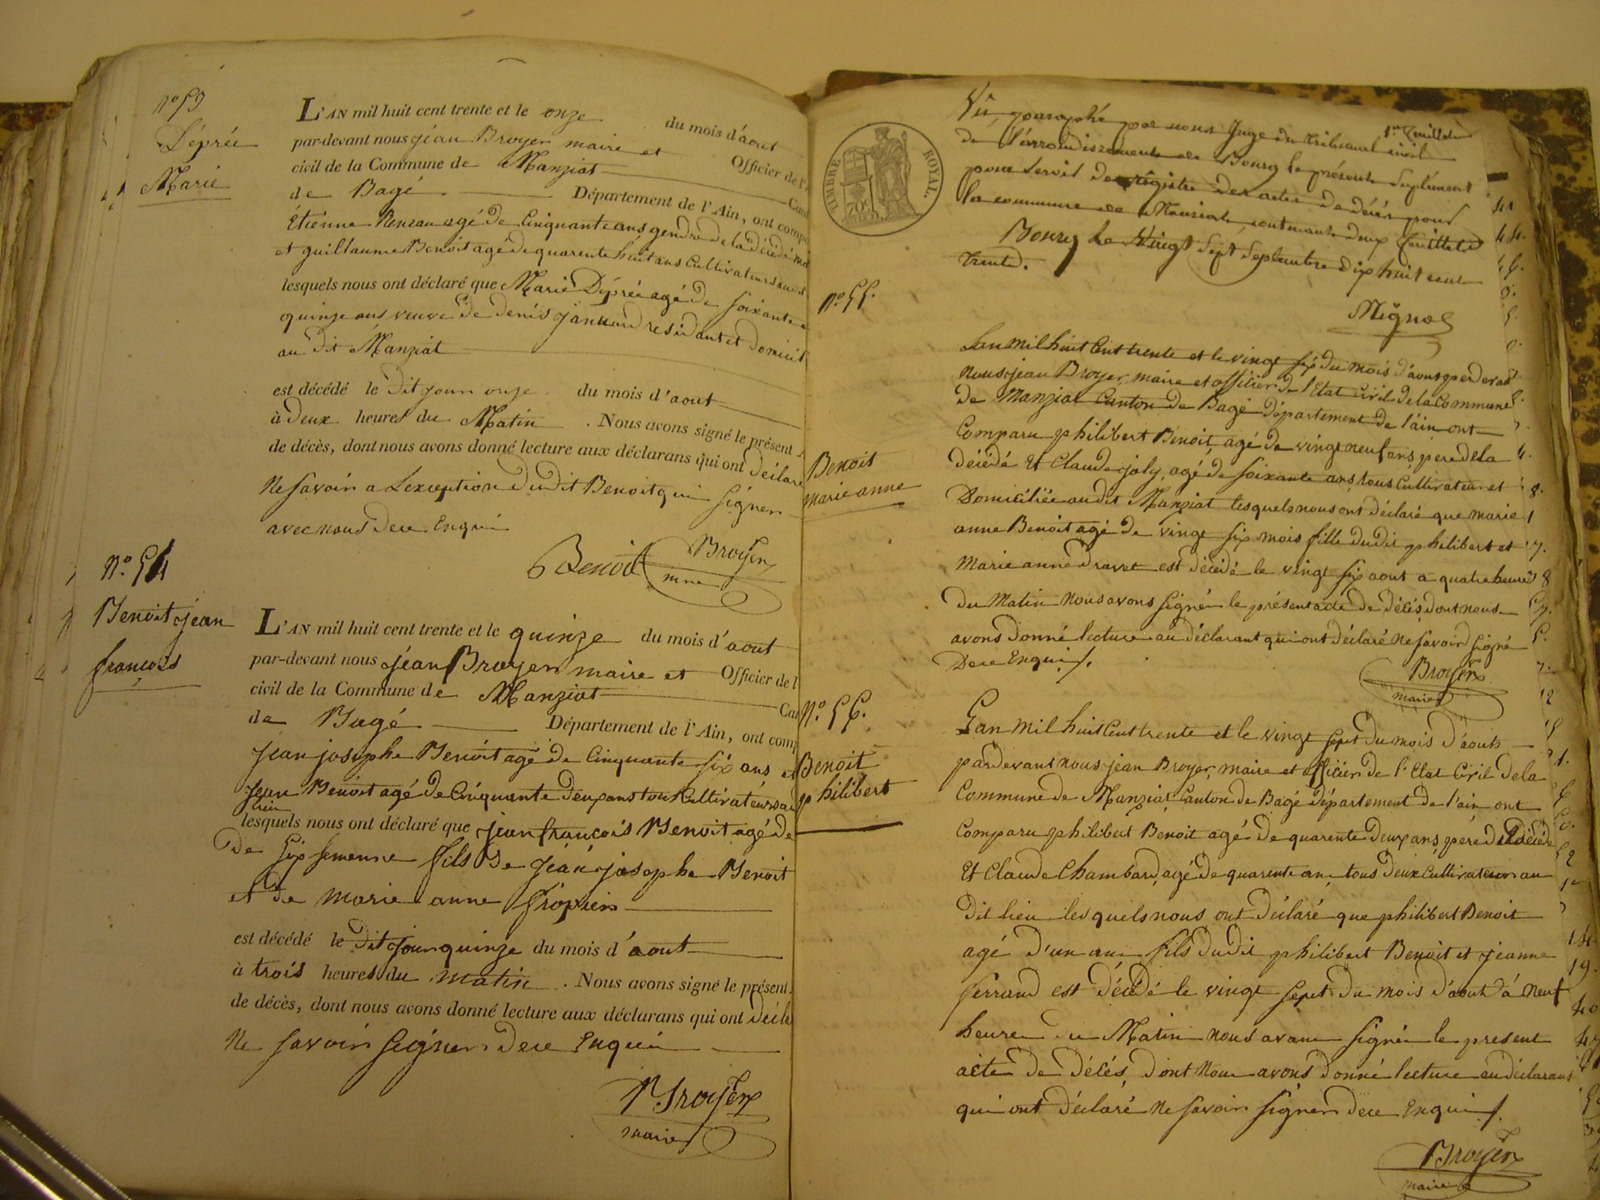 N° 53
Déprée
Marie
L'AN mil huit cent trente et le onze du mois d'aout
par-devant nous jean Broyer maire et Officier de l'
civil de la Commune de Manziat Can
de Bagé Département de l'Ain, ont comp
Étienne agé de Cinquante ans gendre de la décédé
et guillaume Benoit agé de quarente huit ans Cultivateurs
lesquels nous ont déclaré que Marie Déprée agé de soixante
quinze ans veuve de denis janaud residant et domicil
au dit Manziat
est décédé le dit jour onze du mois d'aout
à deux heures du Matin . Nous avons signé le présent
de décès, dont nous avons donné lecture aux déclarans qui ont déclare
Ne savoir a Lexception dudit Benoit qui signer
avec nous de ce Enquis
Benoit Broyer
maire
N° 54
Benoit jean
françois
L'AN mil huit cent trente et le quinze du mois d'aout
par-devant nous jean Broyer maire et Officier de l'
civil de la Commune de Manziat Can
de Bagé Département de l'Ain, ont comp
jean josephe Benoit agé de Cinquante six ans et
jean Benoit agé de Cinquante deux ans tous Cultivateurs
lesquels nous ont déclaré que jean françois Benoit agé de
de six semenne fils de jean josephe Benoit
et de marie anne
est décédé le dit jour quinze du mois d'aout
à trois heures du matin . Nous avons signé le présent
de décès, dont nous avons donné lecture aux déclarans qui ont décla
Ne savoir signer de ce Enquis
Broyer
maire
TIMBRE ROYAL
1er feuillet
Vu, paraphé par nous juge du tribunal civil
de l'arrondissement de Bourg le présent suplément
pour servir de registre des actes de décès pour
la commune de Manziat, contenant deux feuillets
Bourg le Vingt sept septembre dix huit cent
trente.
N° 55.
Benoit
marie anne
Lan mil huit Cent trente et le vingt six du mois d'aout perdevant
nous jean Broyer, maire et officier de l'Etat Civil de la Commune
de Manziat Canton de Bagé département de l'ain ont
Comparu philibert Benoit agé de vingt neuf ans, pere de la
décédé Et Claude joly, agé de soixante ans, tous Cultivateur et
Domiciliée au dit Manziat lesquels nous ont déclaré que marie
anne Benoit agé de vingt six mois fille dudit philibert et
Marie anne dravet est décédé le vingt six aout a quatre heures
du Matin nous avons signé le présent acte de décès dont nous
avons donné lecture au déclarant qui ont déclaré ne savoir signé
De ce Enquis.
Broyer
maire
N° 56.
Benoit
philibert
Lan mil huit Cent trente et le vingt sept du mois d'aout
pardevant nous jean Broyer, maire et officier de l'Etat Civil de la
Commune de Manziat Canton de Bagé département de l'ain ont
Comparu philibert Benoit agé de quarente deux ans, père du décédé
Et Claude Chambard, agé de quarente ans, tous deux cultivateur au
dit lieu lesquels nous ont déclaré que philibert Benoit
agé d'un an fils dudit philibert Benoit et jeanne
ferrand est décédé le vingt sept du mois d'aout à neuf
heures du Matin nous avons signé le present
acte de décés, dont Nous avons donné lecture au déclarant
qui ont déclaré ne savoir signer de ce Enquis.
Broyer
maire